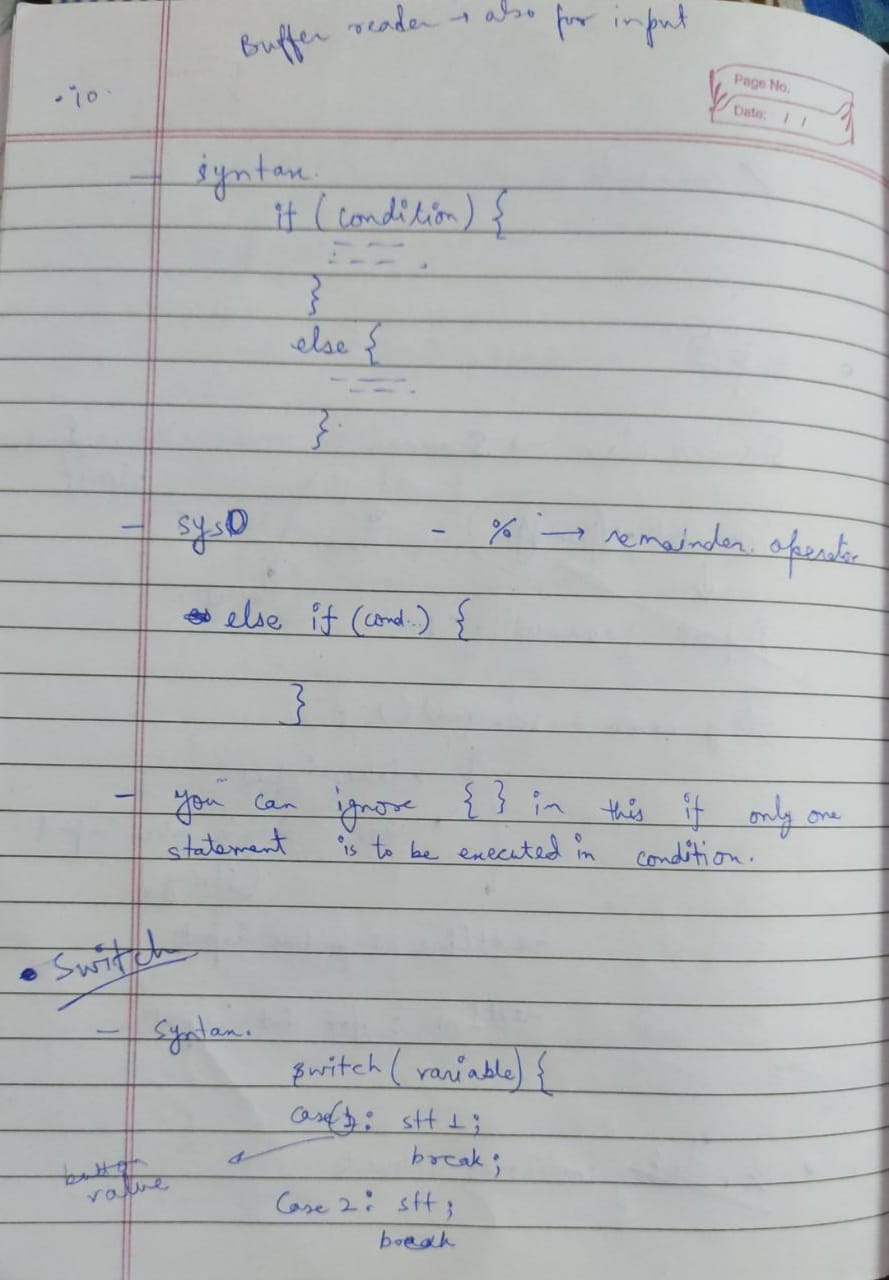 Buffer reader → also for input
Page No.
Date: / /
- syntax.
if (condition) {
}
else {
}
- sysO - % → remainder operator
else if (cond..) {
}
- you can ignore { } in this if only one
statement is to be executed in condition.
• Switch
- Syntax.
switch ( variable) {
case 1: stt 1;
break;
button
value
Case 2: stt ;
break